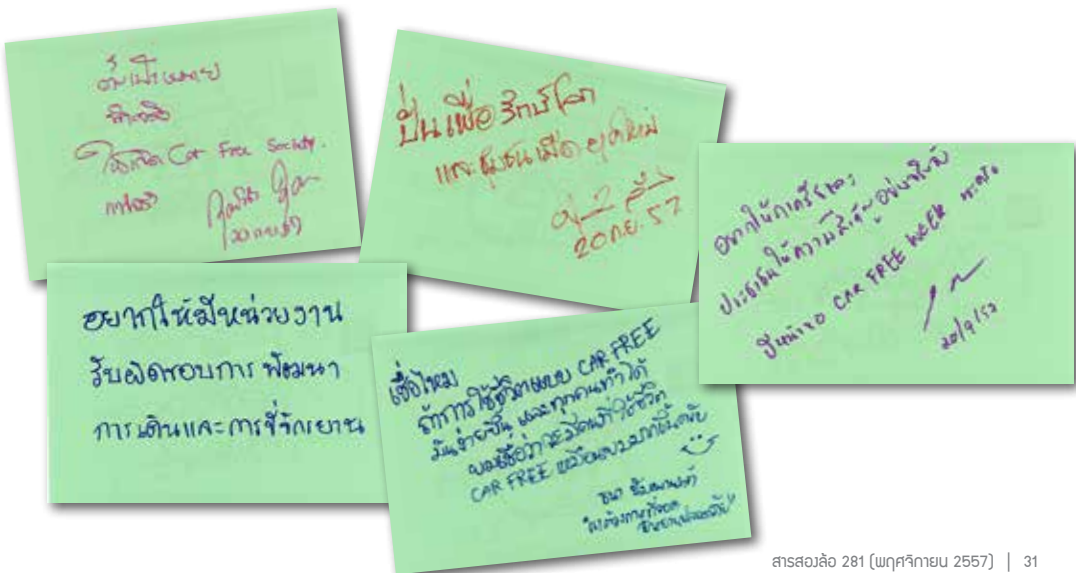 Car Free Society.
ปั่นเพื่อรักษ์โลก
และชุมชนเมืองยุคใหม่
20 ก.ย. 57
อยากให้ภาครัฐและ
ประชาชนให้ความสำคัญอย่างจริงจัง
ปีหน้าขอ CAR FREE WEEK นะครับ
20/9/57
อยากให้มีหน่วยงาน
รับผิดชอบการพัฒนา
การเดินและการขี่จักรยาน
เชื่อไหม
ถ้าการใช้ชีวิตแบบ CAR FREE
มันง่ายขึ้น และทุกคนทำได้
ผมเชื่อว่าจะมีคนมาใช้ชีวิต
CAR FREE เหมือนผมมากขึ้นครับ
สารสองล้อ 281 (พฤศจิกายน 2557) | 31